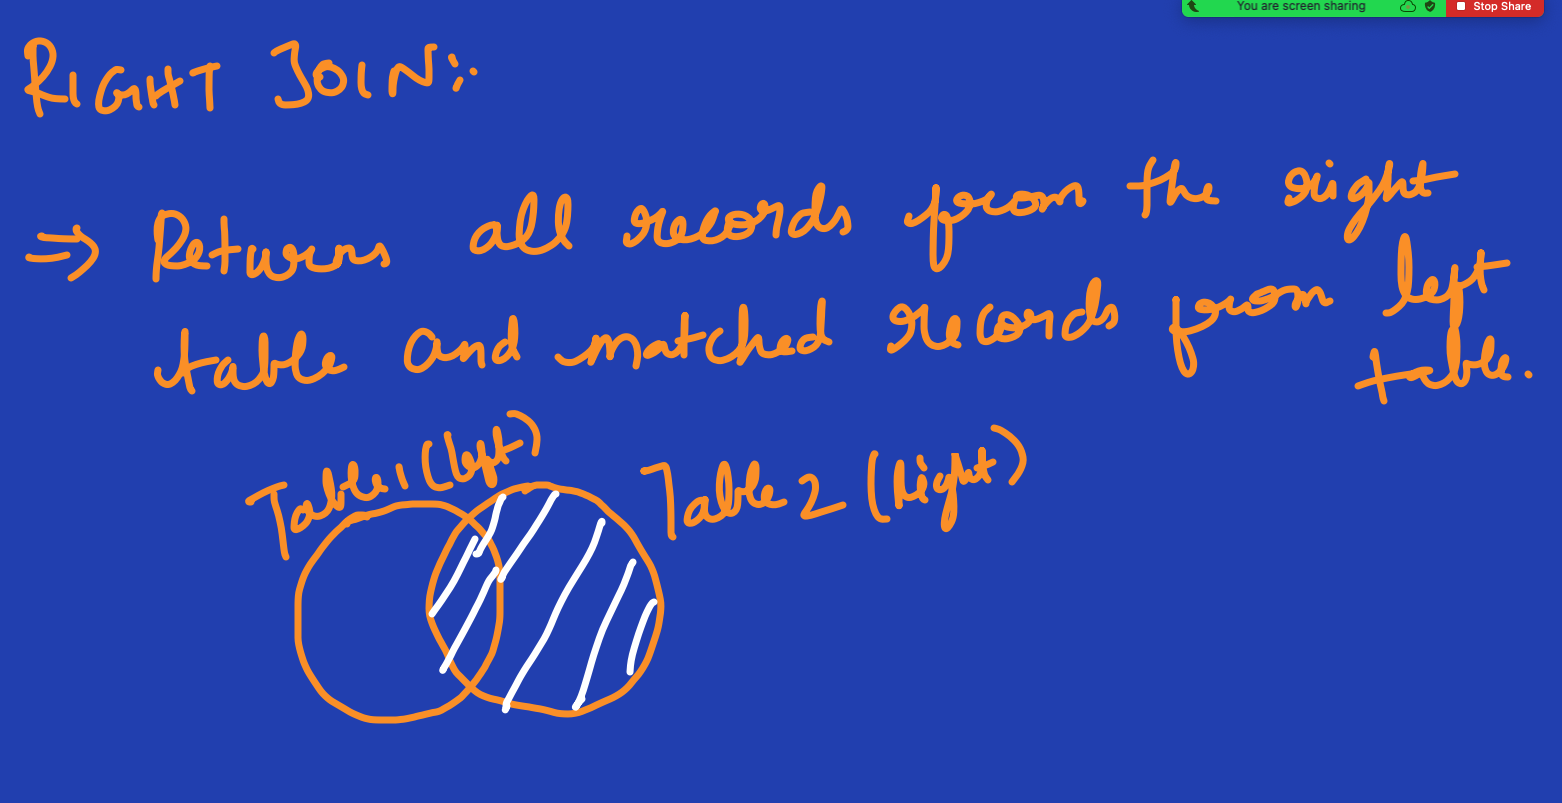 You are screen sharing Stop Share
RIGHT JOIN:-
⇒ Returns all records from the right
table and matched records from left
table.
Table 1 (left)
Table 2 (Right)